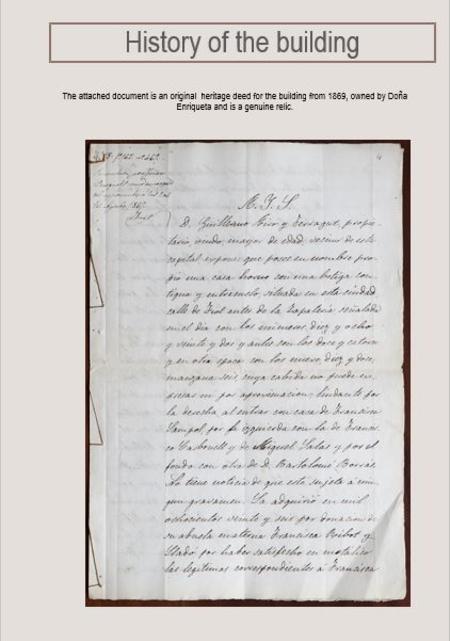 History of the building
The attached document is an original heritage deed for the building from 1869, owned by Doña
Enriqueta and is a genuine relic.
4
M. I. S.
D. Guillermo y Ferragut, propie-
tario, viudo, mayor de edad, vecino de esta
capital expone: que posee en nombre pro-
pio una casa horno con una botiga con-
tigua y entresuelo, situada en esta ciudad
calle de antes de la Zapateria señalada
en el dia con los números diez y ocho
y veinte y dos y antes con los doce y catorce
y en otra epoca con los nueve, diez y doce,
manzana seis, cuya cabida no puede es-
presar ni por aproximacion; lindante por
la derecha al entrar con casa de Francisco
Sampol, por la izquierda con la de Francis-
co Carbonell y de Miguel Salas y por el
fondo con otra de D. Bartolomé Borras.
No tiene noticia de que esté sujeta á nin-
gun gravamen. La adquirió en mil
ochocientos veinte y seis por donacion de
su abuela materna Francisca Ribot y
Lladó por haber satisfecho en metalico
las legitimas correspondientes á Francisca